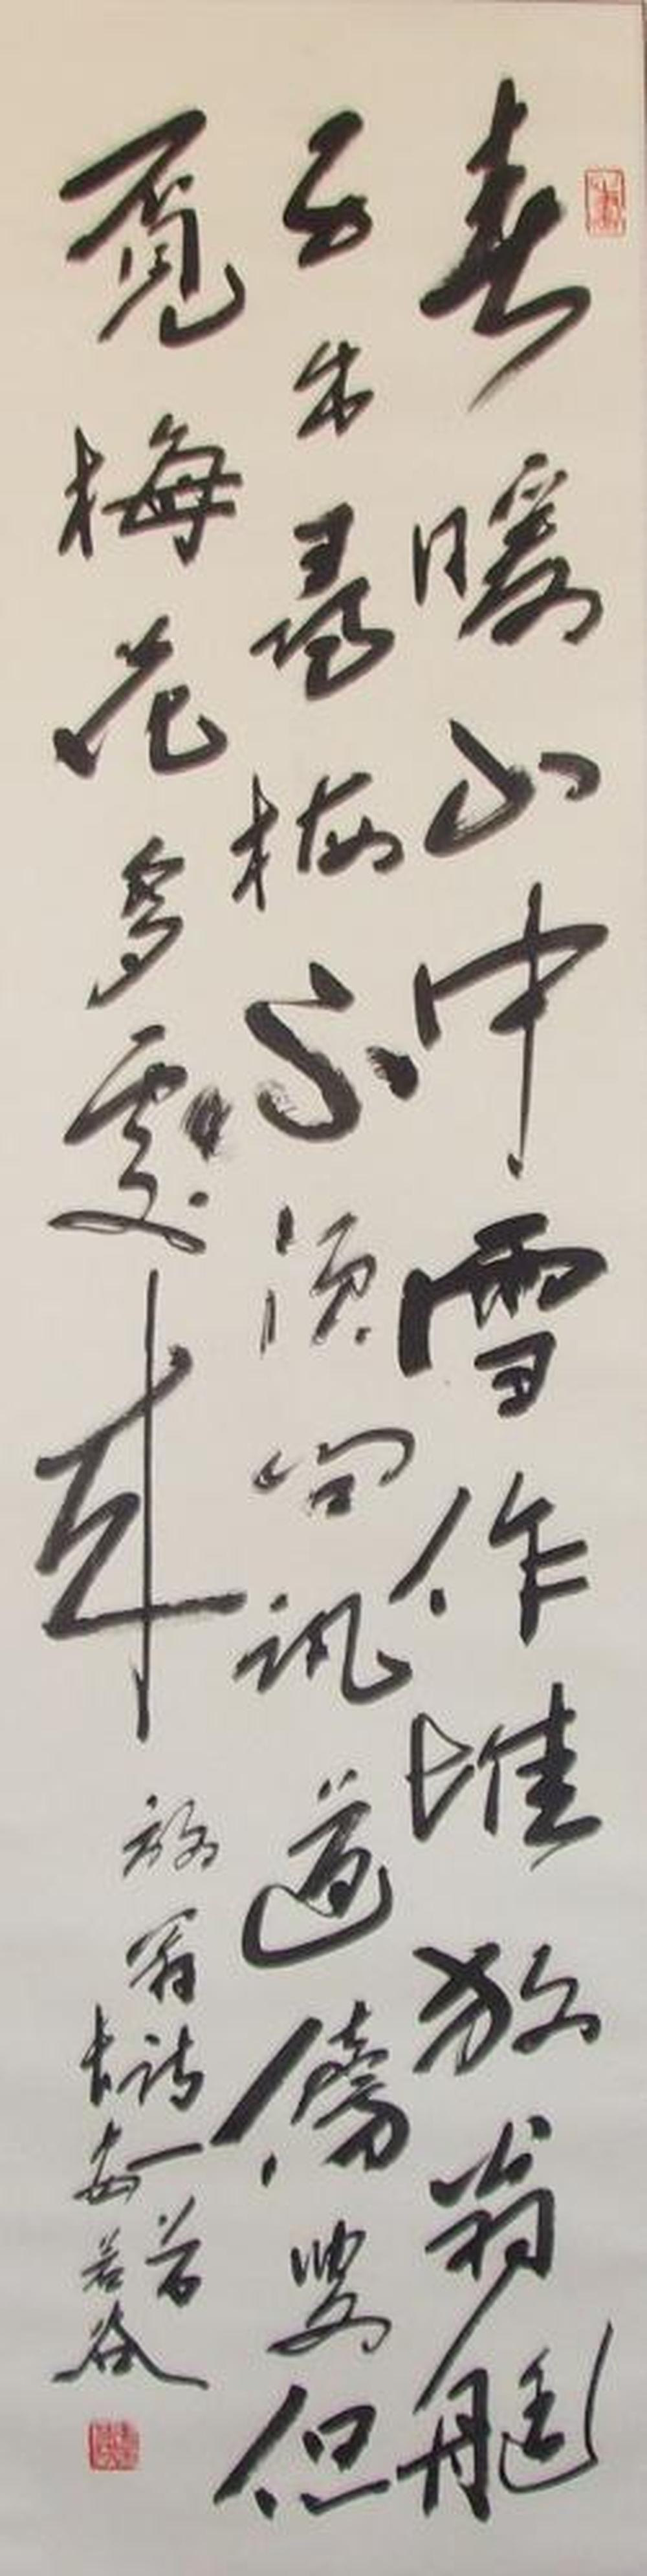 春暖山中雪作堆放翁艇
子出尋梅不須問訊道傍叟但
覓梅花多處來 放翁詩一首
若谷